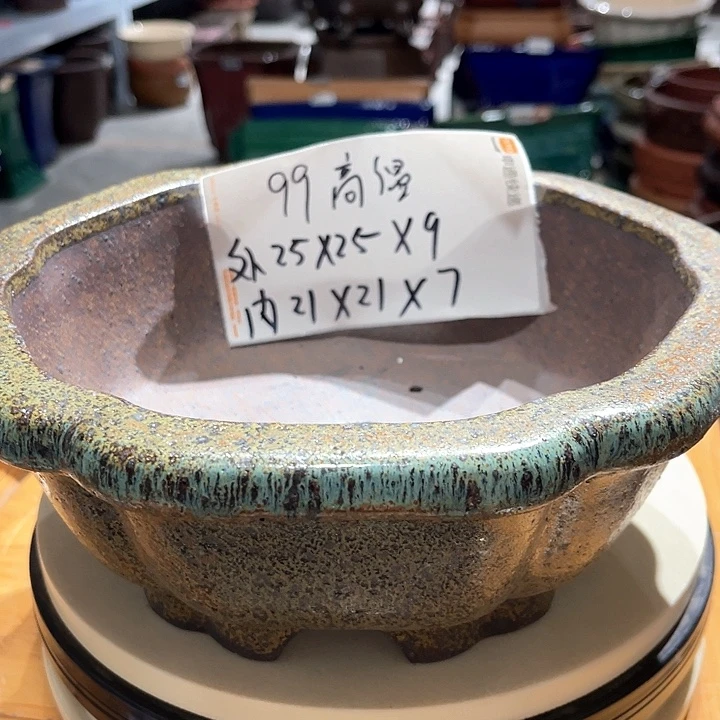 99 高温
外 25X25X9
内 21X21X7